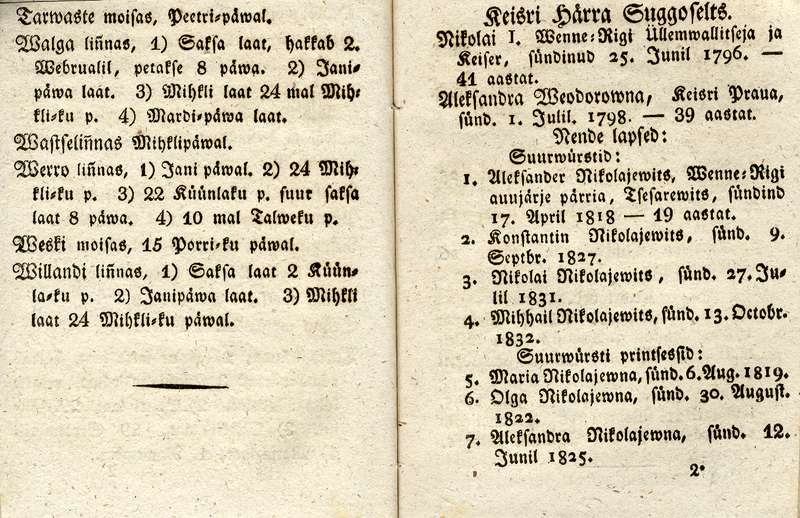 Tarwaste moisas, Peetri-päwal.
Walga liñnas, 1) Saksa laat, hakkab 2.
Webrualil, petakse 8 päwa. 2) Jani-
päwa laat. 3) Mihkli laat 24 mal Mih-
kli-ku p. 4) Mardi-päwa laat.
Wastseliñnas Mihklipäwal.
Werro liñnas, 1) Jani päwal. 2) 24 Mih-
kli-ku p. 3) 22 Küünlaku p. suur saksa
laat 8 päwa. 4) 10 mal Talweku p.
Weski moisas, 15 Porri-ku päwal.
Willandi liñnas, 1) Saksa laat 2 Küün-
la-ku p. 2) Janipäwa laat. 3) Mihkli
laat 24 Mihkli-ku päwal.
Keisri Härra Suggoselts.
Nikolai I. Wenne-Rigi Üllemwallitseja ja
Keiser, sündinud 25. Junil 1796. —
41 aastat.
Aleksandra Weodorowna, Keisri Praua,
sünd. 1. Julil. 1798. — 39 aastat.
Nende lapsed:
Suurwürstid:
1. Aleksander Nikolajewits, Wenne-Rigi
auujärje pärria, Tsesarewits, sündind
17. April 1818 — 19 aastat.
2. Konstantin Nikolajewits, sünd. 9.
Septbr. 1827.
3. Nikolai Nikolajewits, sünd. 27. Ju-
lil 1831.
4. Mihhail Nikolajewits, sünd. 13. Octobr.
1832.
Suurwürsti printsessid:
5. Maria Nikolajewna, sünd. 6. Aug. 1819.
6. Olga Nikolajewna, sünd. 30. August.
1822.
7. Aleksandra Nikolajewna, sünd. 12.
Junil 1825.
2*